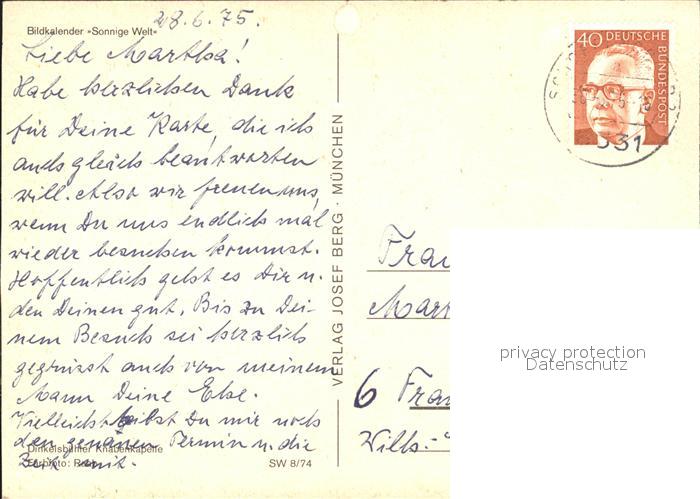 Bildkalender »Sonnige Welt«
28.6.75.
Liebe Martha!
Habe herzlichen Dank
für Deine Karte, die ich
auch gleich beantworten
will. Also wir freuen uns,
wenn Du uns endlich mal
wieder besuchen kommst.
Hoffentlich geht es Dir u.
den Deinen gut. Bis zu Dei-
nem Besuch sei herzlich
gegrüsst auch von meinem
Mann Deine Else.
Vielleicht gibst Du mir noch
den genauen Termin u. die
Zeit mit.
Dinkelsbühler Knabenkapelle
Farbfoto:
SW 8/74
VERLAG JOSEF BERG · MÜNCHEN
40 DEUTSCHE
BUNDESPOST
531
Frau
Mart
6 Fran
Wilh.-
privacy protection
Datenschutz